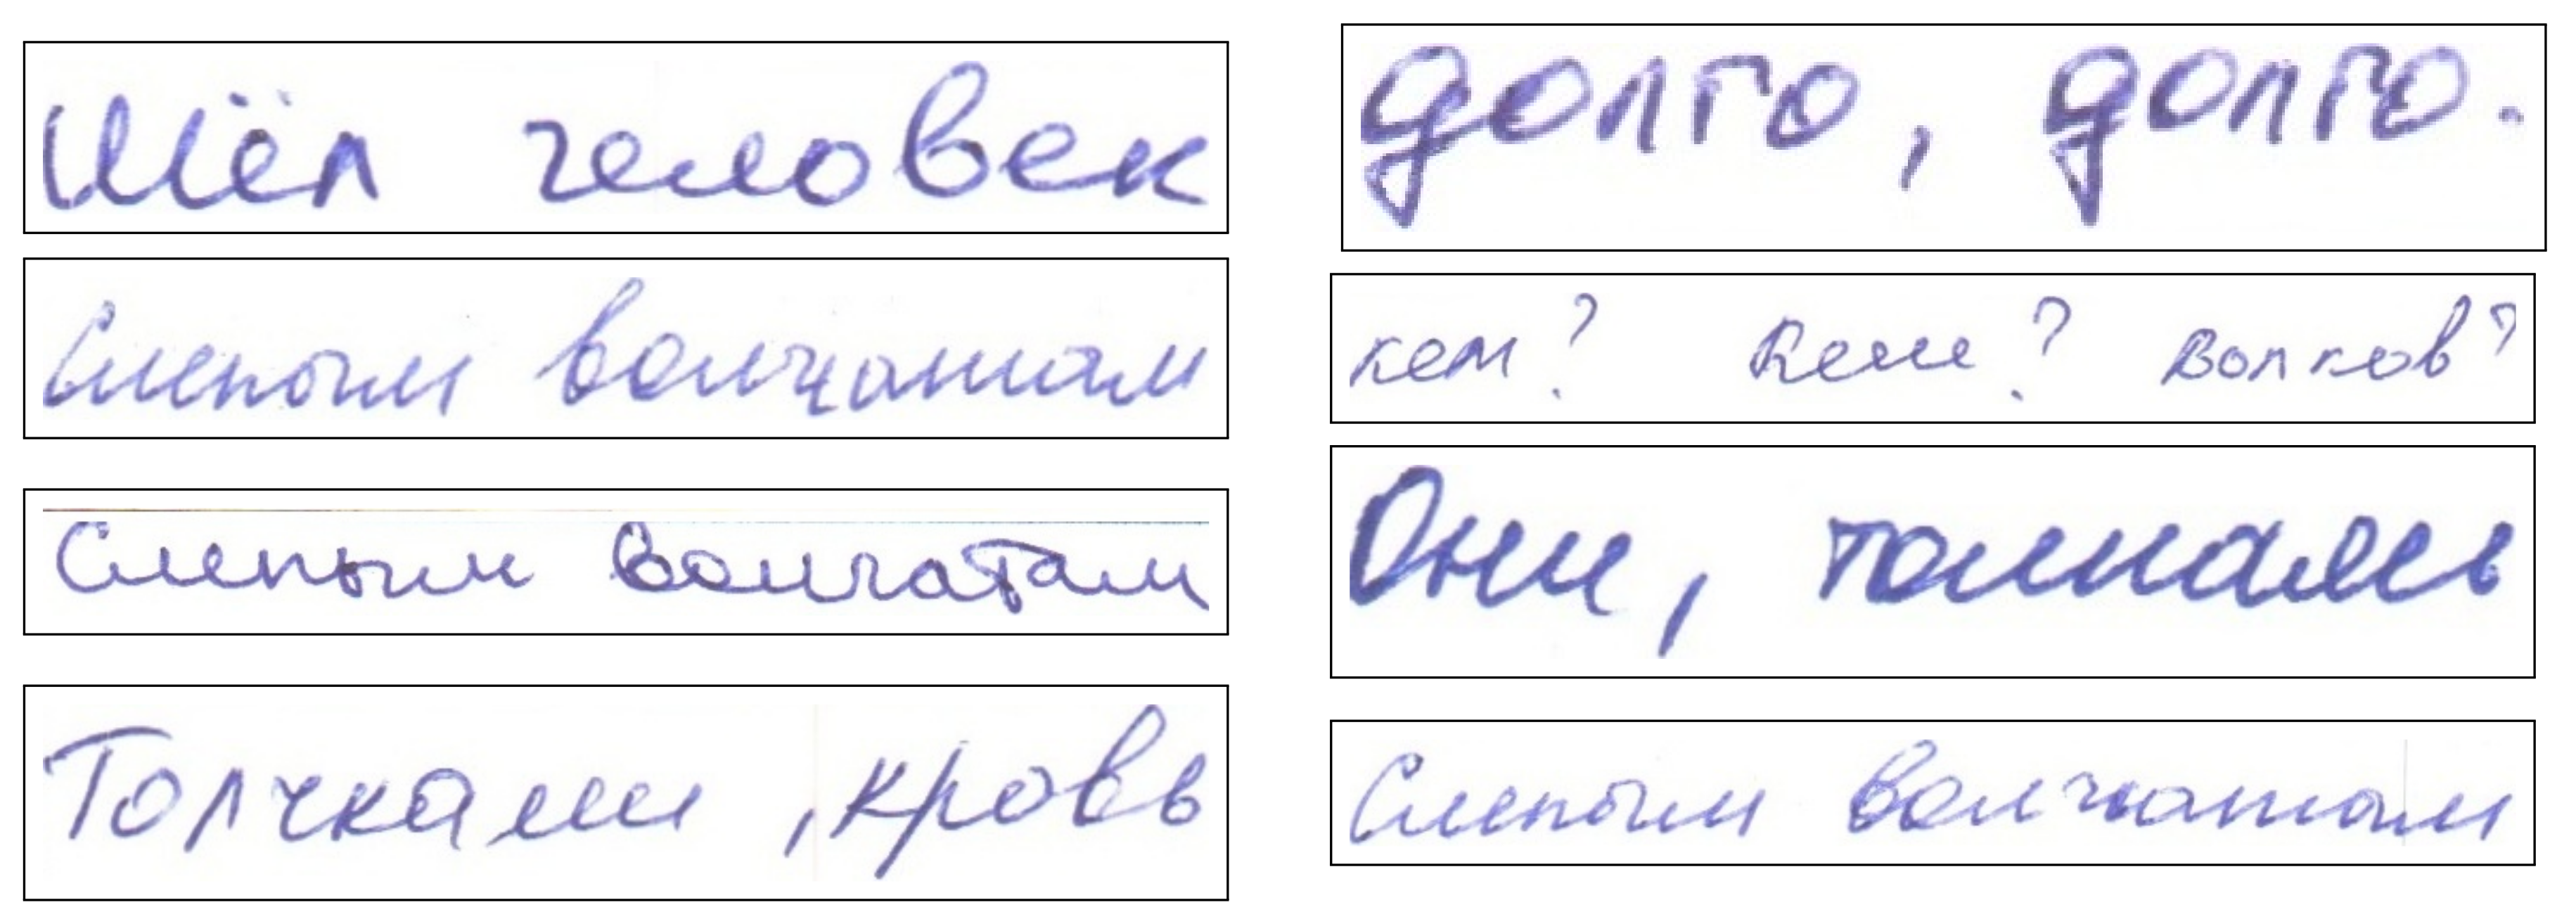 Шёл человек
долго, долго.
Слепым волчатам
кем? Кем? волков?
Слепым волчатам
Они, толкаясь
Толчками, кровь
Слепым волчатам